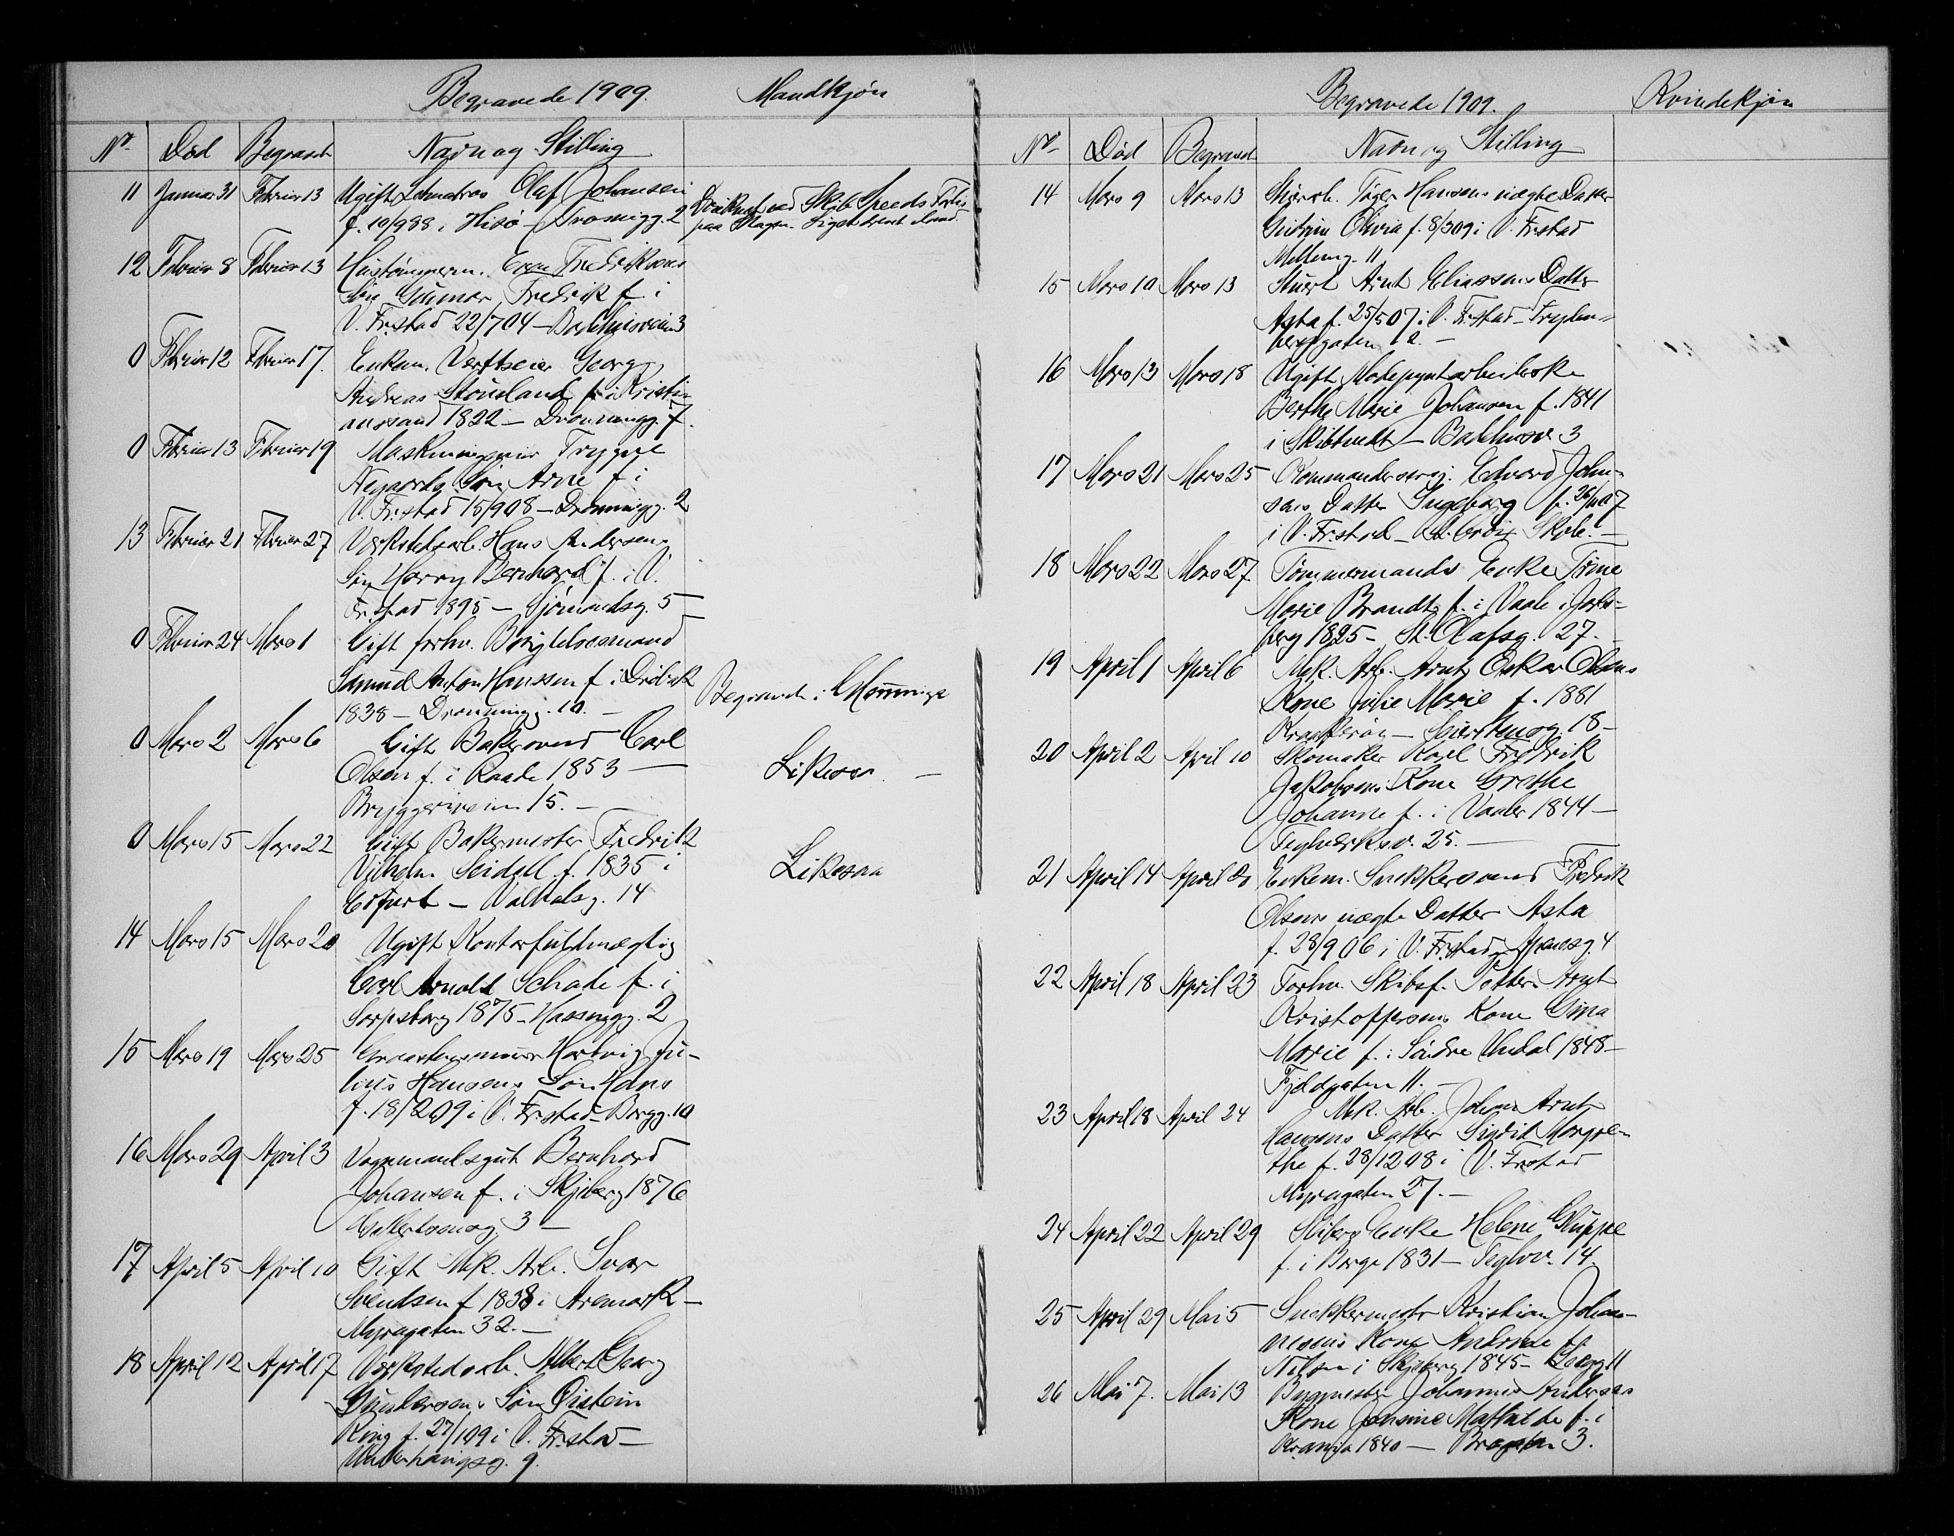 Begravede 1909. Mandkjøn
No Død Begravet Navn og Stilling
11 Januar 31 Februar 13 Ugift Olaf Johansen
f. 10/988 i Hisø – Dronningg. 2
Druknet ved Skib Speeds Forlis
paa Skagen. Liget
12 Februar 8 Februar 13 Hustømmerm. Fredriksens
Søn Gunnar Fredrik f. i
V. Fr.stad 22/704 – Bakhusvein 3
0 Februar 12 Februar 17. Enkem. Værftseier Georg
Andreas f. i Kristi-
anssand 1822 – Dronningg. 7.
0 Februar 13 Februar 19 Trygve
Søn Arne f. i
V. Fr.stad 15/908 – Dronningg. 2
13 Februar 21 Februar 27 Værkstedsarb. Hans Andersens
Søn Harry Bernhard f. i V.
Fr.stad 1895 – Sjømandsg. 5 –
0 Februar 24 Mars 1 Gift forhv.
Samuel Anton Hanssen f. i Drøbak
1838 – Dronningg. 10. –
Begravet i Glemminge
0 Mars 2 Mars 6 Gift Bakersvend Carl
Olsen f. i Raade 1853 –
Bryggeriveien 15. –
Likesaa –
0 Mars 15 Mars 22 Gift Bakermester Fredrik
Vilhelm Seidell f. 1835 i
Erfurt – Valhalsg. 14
Likesaa
14 Mars 15 Mars 20 Ugift Kontorfuldmægtig
Carl Arnold Schade f. i
Sarpsborg 1875 – Hassingg. 2
15 Mars 19 Mars 25 Hartvig Ju-
lius Hansens Søn Hans
f. 18/209 i V. Fr.stad – Borgg. 10
16 Mars 29 April 3 Vognmandsgut Bernhard
Johansen f. i Skjeberg 1876
3 –
17 April 5 April 10 Gift Mek. Arb. Svar
Svendsen f. 1838 i Aremark –
Myragaten 32. –
18 April 12 April 17 Værkstedsarb. Albert Georg
Gundersens Søn Øistein
Ring f. 27/109 i V. Fr.stad –
9.
Begravede 1909. Kvindekjøn
No Død Begravet Navn og Stilling
14 Mars 9 Mars 13 Tøger Hansens uægte Datter
Gudrun Olivia f. 8/309 i V. Fr.stad
11
15 Mars 10 Mars 13 Stuert Arnt Eliassens Datter
Asta f. 25/507 i V. Fr.stad – Trylen-
berggaten 12. –
16 Mars 13 Mars 18 Ugift Modepyntarbeiderske
Berthe Marie Johansen f. 1841
i Skibtvedt – Bakhusv. 3
17 Mars 21 Mars 25 Kommandersergj. Edvard John-
sens Datter Ingeborg f. 26/1007
i V. Fr.stad – St. Croix Skole. –
18 Mars 22 Mars 27 Tømmermands Enke Trine
Marie Brandt f. i Vaale i Jarls-
berg 1825 – St. Olafsg. 27. –
19 April 1 April 6 Mek. Arb. Arnt Oskar Olsens
Kone Julie Marie f. 1881
Kraakerøy – 18 –
20 April 2 April 10 Skomaker Karl Fredrik
Jakobsens Kone Grethe
Johanne f. i Vaaler 1844 –
Teglverksv. 25. –
21 April 14 April 20 Enkem. Snekkersvend Fredrik
Olsens uægte Datter Asta
f. 28/906 i V. Fr.stad 4
22 April 18 April 23 Forhv. Skibsf. Petter Arnt
Kristoffersens Kone Gina
Marie f. i Søndre Undal 1848 –
Fjeldgaten 11. –
23 April 18 April 24 Mek. Arb. Johan Arnt
Hansens Datter Sigrid Margre-
the f. 28/1208 i V. Fr.stad
Myragaten 27. –
24 April 22 April 29 Enke Helene Gluppe
f. i Borge 1831 – Teglvv. 14.
25 April 29 Mai 5 Snekkermester Kristian Johan-
nessens Kone Andrine f.
Nilsen i Skjeberg 1845 – 11
26 Mai 7. Mai 13 Bygmester Johannes Andersens
Kone Jensine Mathilde f. i
1840 – 3.